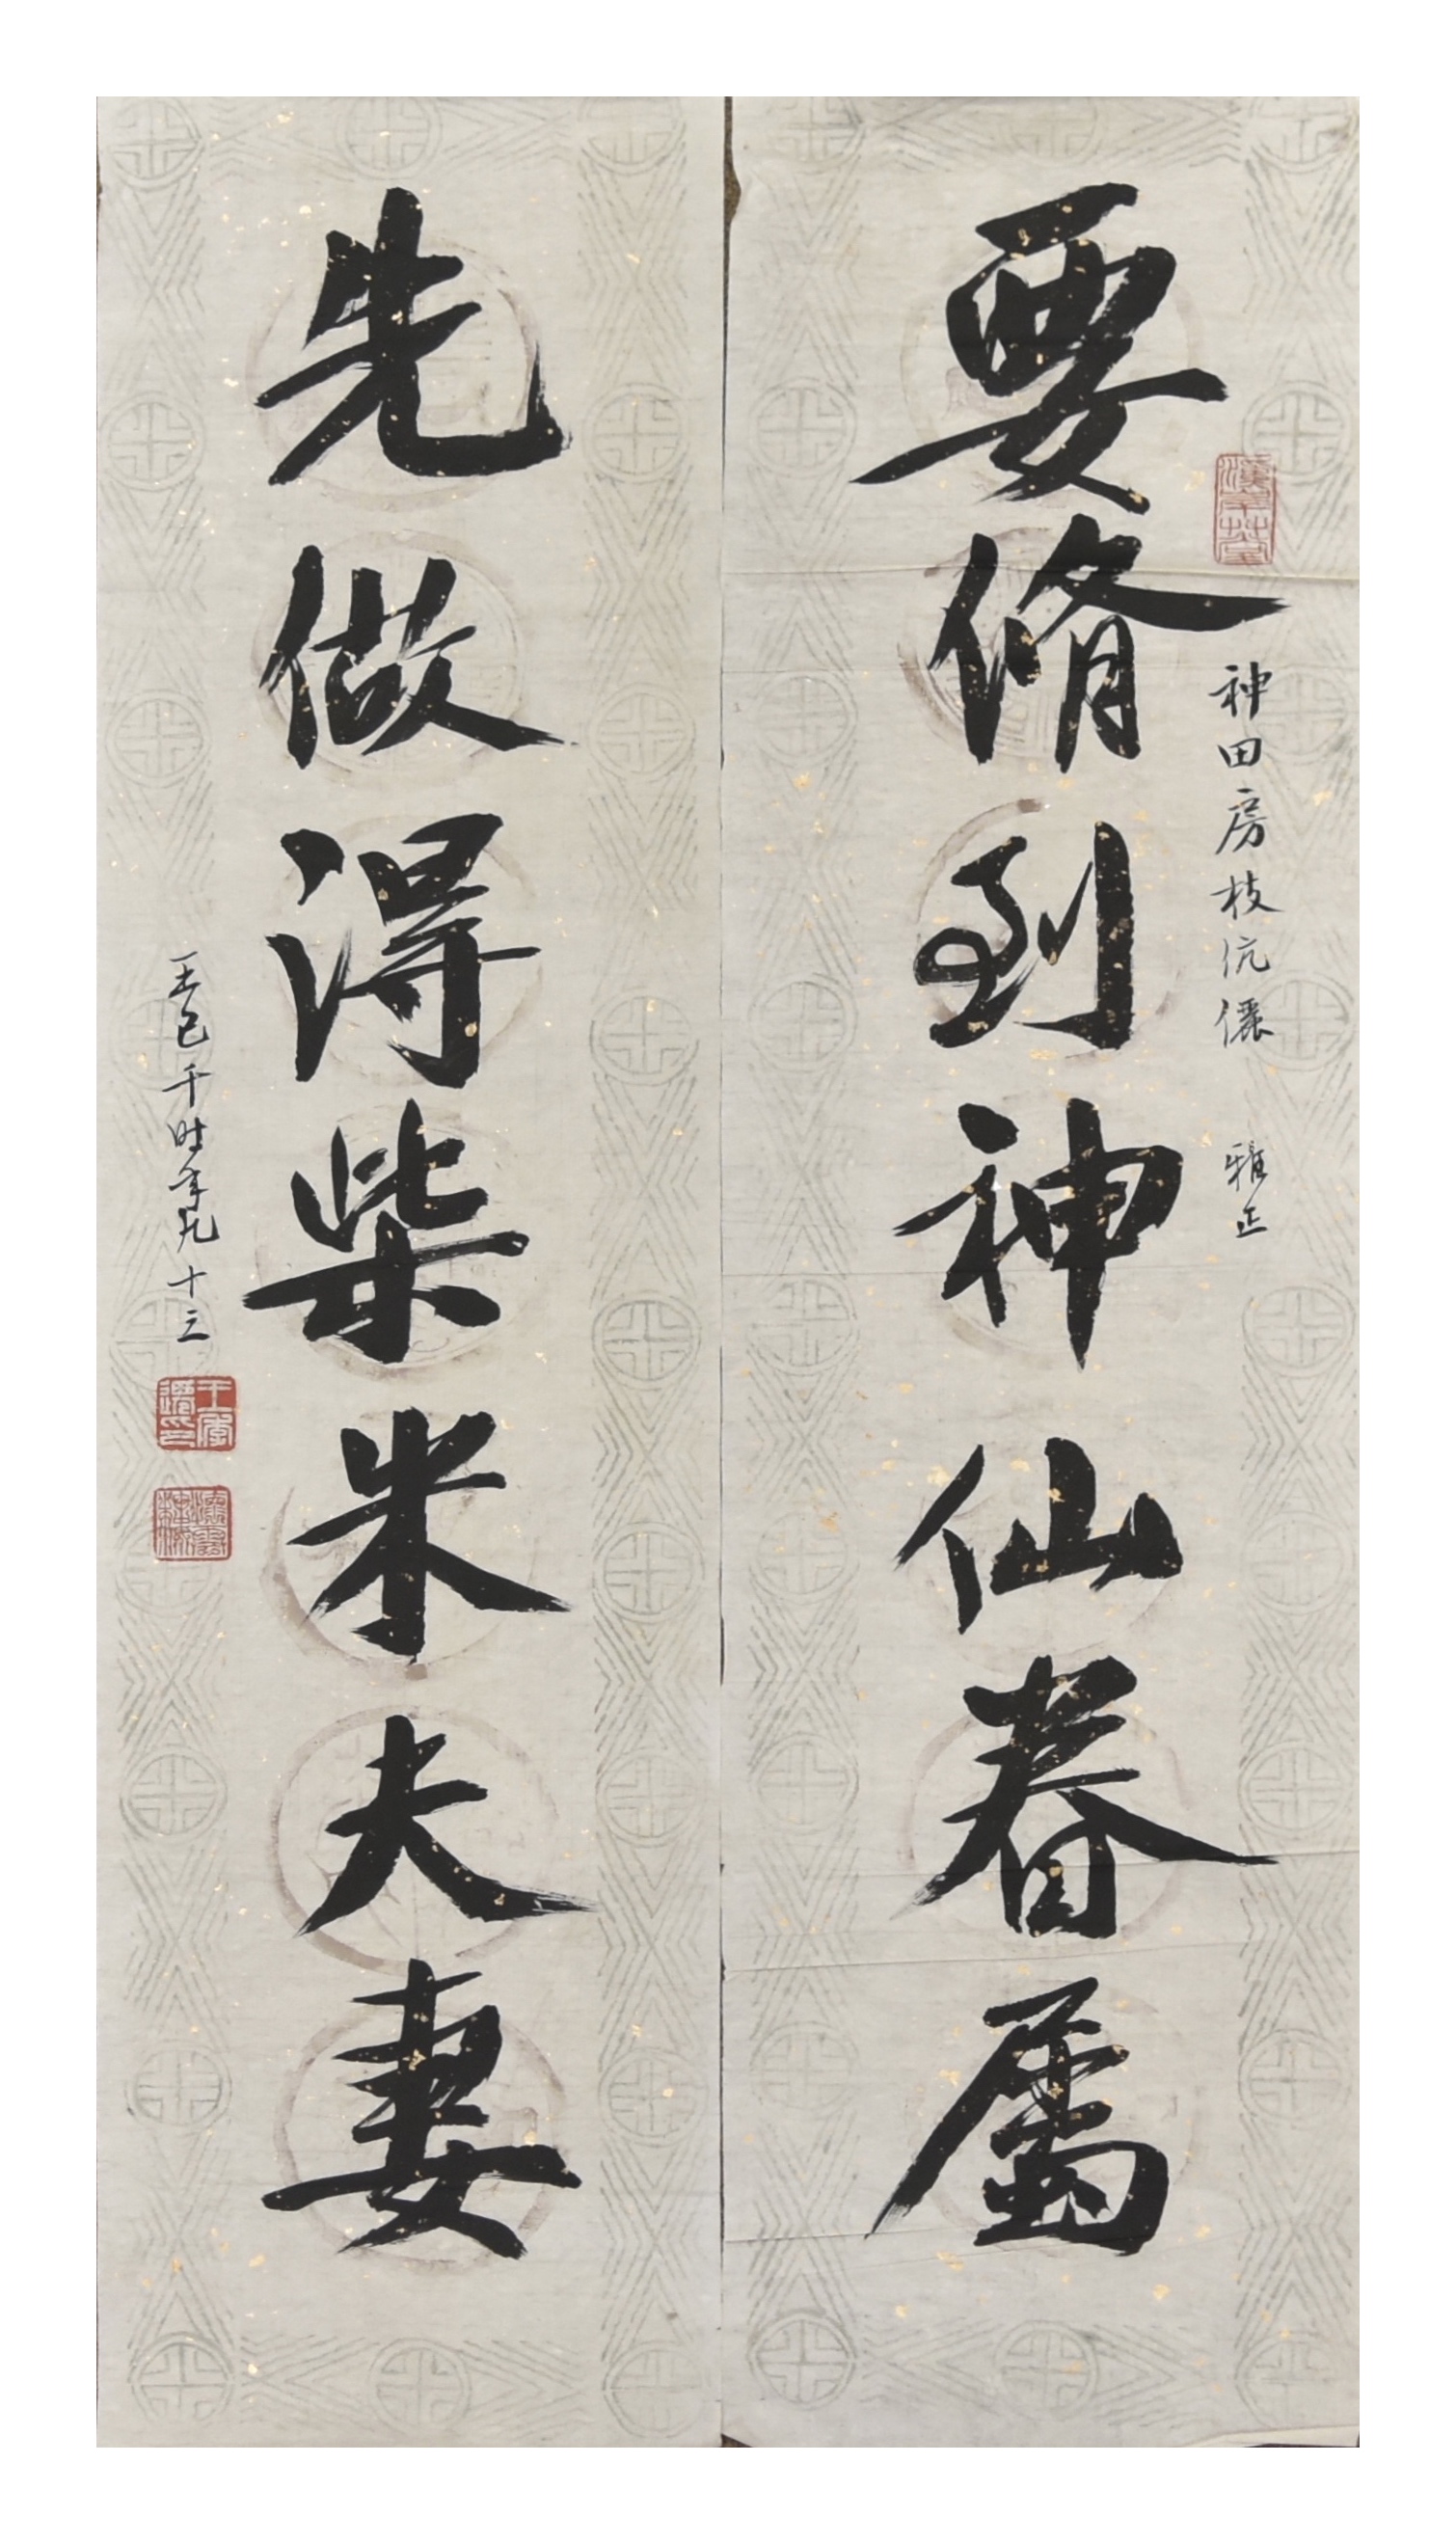 要脩到神仙眷属
神田房枝伉儷 雅正
先做得柴米夫妻
王己千時年九十三